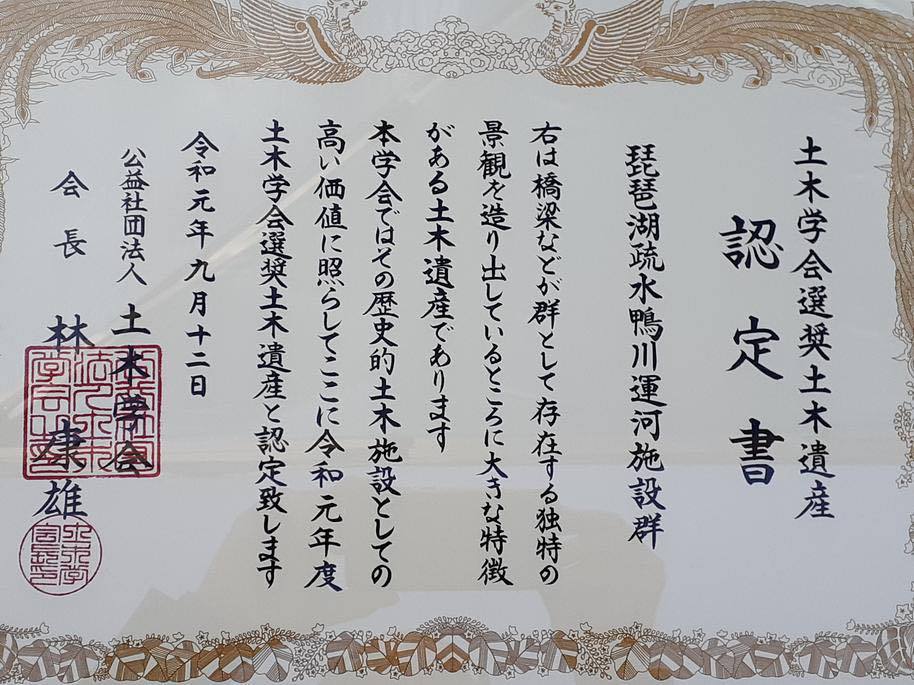 土木学会選奨土木遺産
認定書
琵琶湖疏水鴨川運河施設群
右は橋梁などが群として存在する独特の
景観を造り出しているところに大きな特徴
がある土木遺産であります
本学会ではその歴史的土木施設としての
高い価値に照らしてここに令和元年度
土木学会選奨土木遺産と認定致します
令和元年九月十二日
公益社団法人 土木学会
会長 林康雄